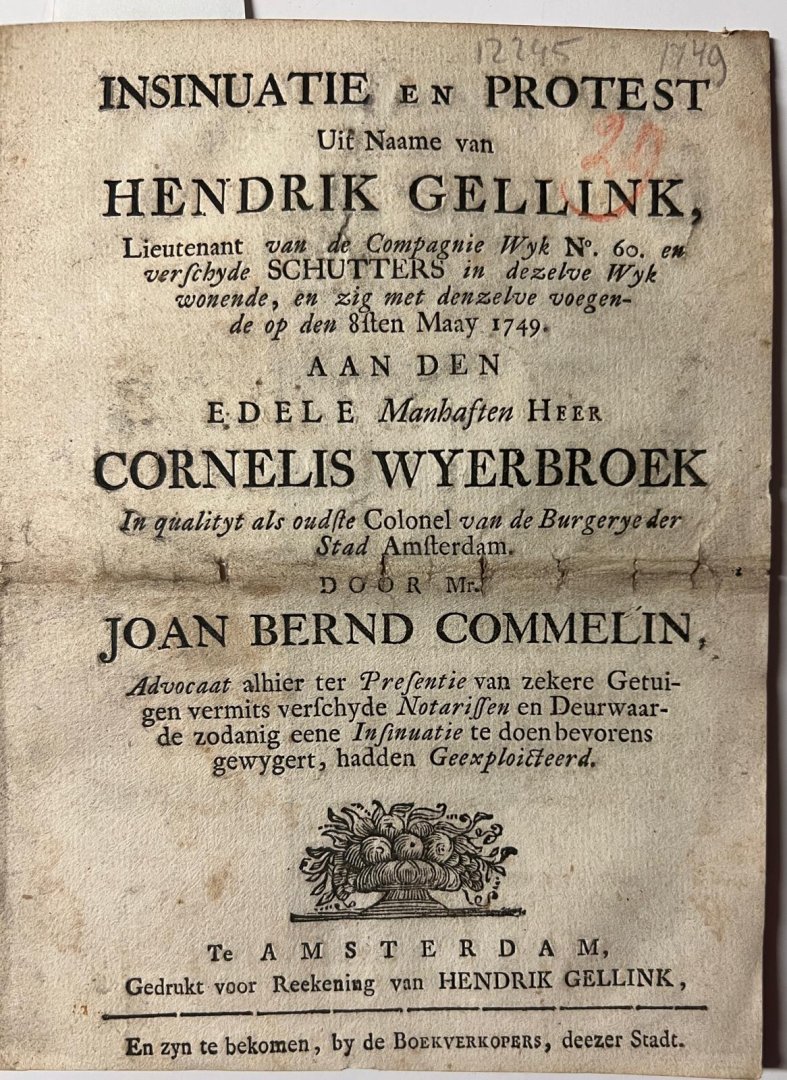 12245 1749
INSINUATIE EN PROTEST
20
Uit Naame van
HENDRIK GELLINK,
Lieutenant van de Compagnie Wyk No. 60. en
verſchyde SCHUTTERS in dezelve Wyk
wonende, en zig met denzelve voegen-
de op den 8ſten Maay 1749.
AAN DEN
EDELE Manhaften HEER
CORNELIS WYERBROEK
In qualityt als oudſte Colonel van de Burgerye der
Stad Amſterdam.
DOOR Mr.
JOAN BERND COMMELIN,
Advocaat alhier ter Preſentie van zekere Getui-
gen vermits verſchyde Notariſſen en Deurwaar-
de zodanig eene Inſinuatie te doen bevorens
gewygert, hadden Geexploicteerd.
Te AMSTERDAM,
Gedrukt voor Reekening van HENDRIK GELLINK,
En zyn te bekomen, by de BOEKVERKOPERS, deezer Stadt.